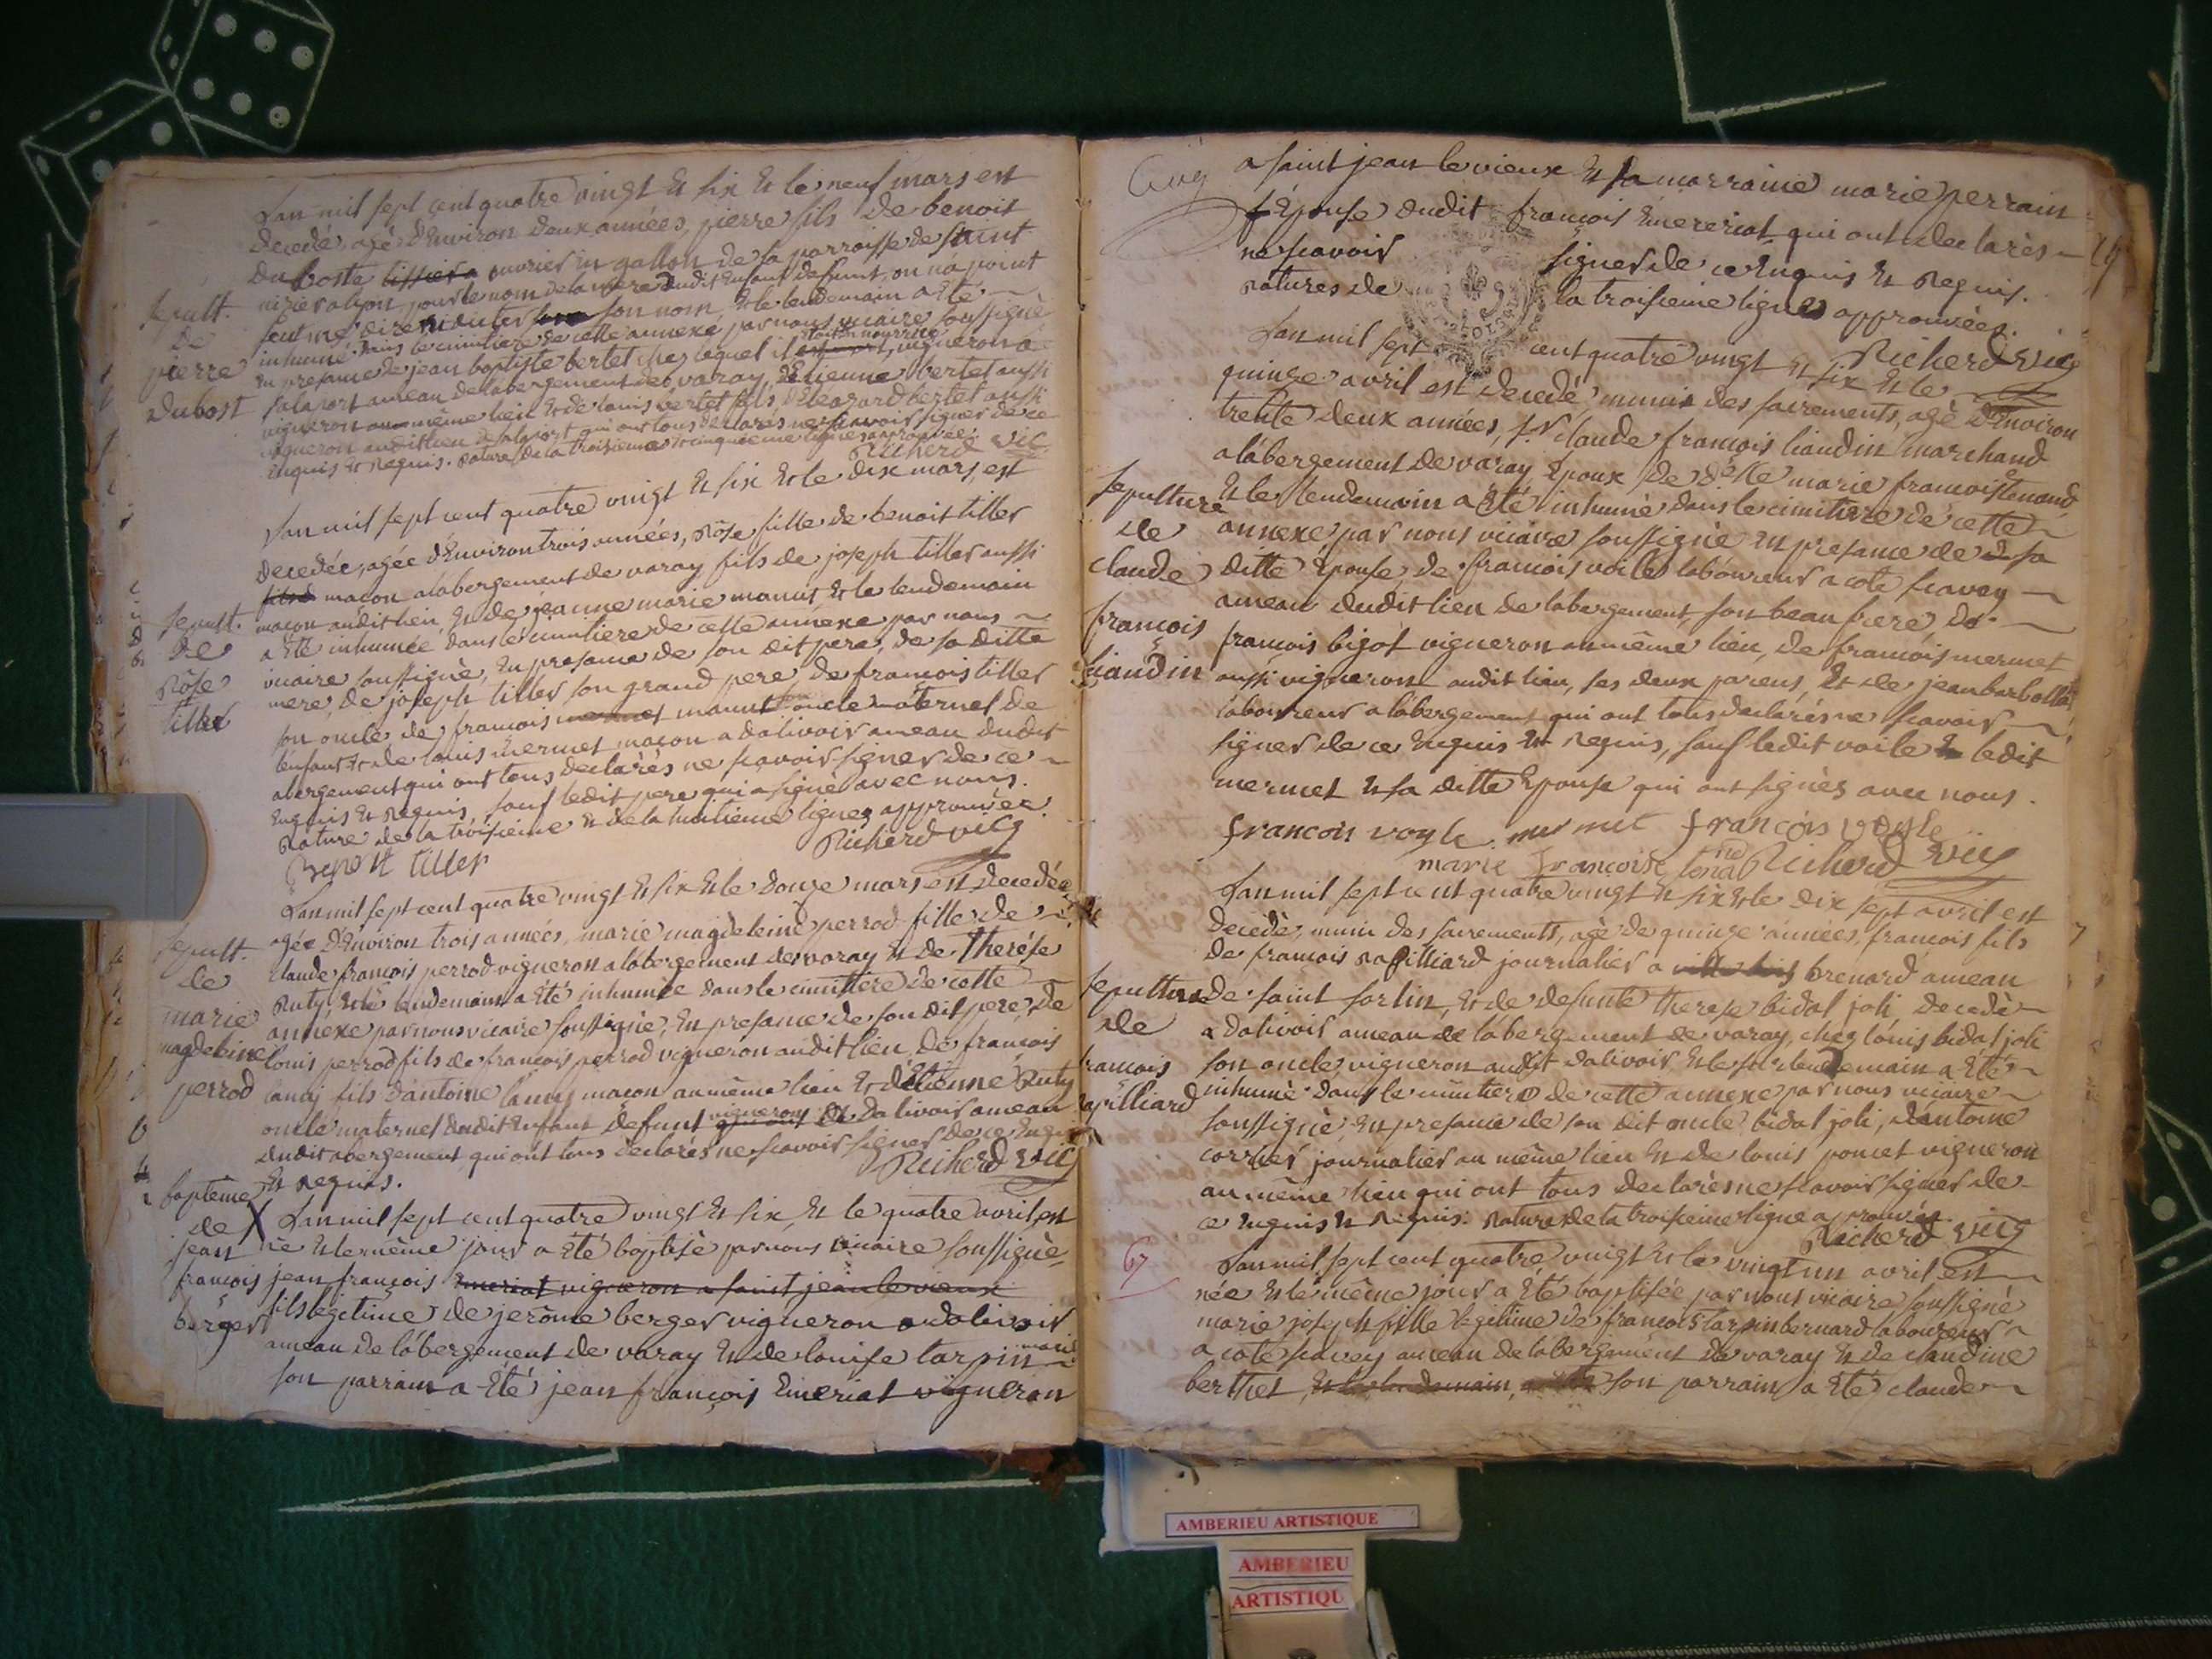 Lan mil sept cent quatre vingt et six et le neuf mars est
decedé, agé d'environ deux années, pierre fils de benoit
duboste tissier a ouvrier en gallon de la parroisse de saint
nizier a lyon pour le nom de la mere dudit enfant defunt, on n'a point
son nom, et le lendemain a été
inhumé dans le cimitiere de cette annexe par nous vicaire soussigné
en presance de jean baptiste bertet chez lequel il étoit en nourrice, vigneron a
salaport ameau de labergement de varay, d'etienne bertet aussi
vigneron au même lieu et de louis bertet fils d'Eleazard bertet aussi
vigneron audit lieu de salaport qui ont tous declarés ne scavoir signer de ce
enquis et requis. rature de la troisieme et cinquieme lignes approuvée.
Richerd vic
sepult.
de
pierre
dubost
Lan mil sept cent quatre vingt et six et le dix mars, est
decedée, agée d'environ trois années, rose fille de benoit tiller
fils d maçon a labergement de varay fils de joseph tiller aussi
maçon audit lieu et de jeanne marie manut et le lendemain
a été inhumée dans le cimitiere de cette annexe par nous
vicaire soussigné, en presance de son dit pere, de sa ditte
mere, de joseph tiller son grand pere, de francois tiller
son oncle, de francois mermet manut son oncle maternel de
lenfant et de louis mermet maçon a dalivoir ameau dudit
abergement qui ont tous declarés ne scavoir signer de ce
enquis et requis, sauf ledit pere qui a signé avec nous.
rature de la troisieme et de la huitieme lignes approuvée.
Benoit tiller Richerd vic
sepult.
de
rose
tiller
Lan mil sept cent quatre vingt et six et le douze mars est decedée
agée d'environ trois années, marie magdeleine perrod fille de
claude francois perrod vigneron a labergement de varay et de therese
ruty, et le lendemain a été inhumée dans le cimitiere de cette
annexe par nous vicaire soussigné, en presance de son dit pere, de
louis perrod fils de francois perrod vigneron audit lieu, de francois
lanaj fils d'antoine lanay maçon au même lieu et d'etienne ruty
oncle maternel dudit enfant defunt vigneron de dalivoir ameau
dudit abergement, qui ont tous declarés ne scavoir signer de ce enquis
et requis. Richerd vic
sepult.
de
marie
magdeleine
perrod
Lan mil sept cent quatre vingt et six, et le quatre avril est
né et le même jour a été baptisé par nous vicaire soussigné
jean françois emeriat vigneron a saint jean le vieux
fils legitime de jerome berger vigneron a dalivoir
ameau de labergement de varay et de louise tarpin
son parrain a été jean françois Emeriat vigneron
baptême
de
jean
françois
berger
a saint jean le vieux et sa marraine marie perrain
épouse dudit françois Emereriat qui ont declarés
ne scavoir signer de ce enquis et requis.
ratures de la troisieme lignes approuvées.
Richerd vic
Lan mil sept cent quatre vingt et six et le
quinze avril est decedé, munis des sacrements, agé d'environ
trente deux années, sr claude françois liaudin marchand
a labergement de varay, époux de delle marie francoise tenand
et le lendemain a été inhumé dans le cimitiere de cette
annexe par nous vicaire soussigné en presance de d sa
ditte épouse, de francois voile laboureur a cote savey
ameau dudit lieu de labergement, son beau frere de
francois bigot vigneron au même lieu, de francois mermet
aussi vigneron audit lieu, ses deux parens, et de jean barbollat
laboureur a labergement qui ont tous declarés ne scavoir
signer de ce enquis et requis, sauf ledit voile et ledit
mermet et sa ditte épouse qui ont signés avec nous.
francois voyle mermet françois voyle
marie francoise tenand Richerd vic
sepulture
de
claude
francois
liaudin
Lan mil sept cent quatre vingt et six et le dix sept avril est
decedé, muni des sacrements, agé de quinze années, francois fils
de francois rapilliard journalier a brenard ameau
de saint sorlin, et de defunte therese bidal joli, decedé
a dalivoir ameau de labergement de varay, chez louis bidal joli
son oncle vigneron audit dalivoir et le lendemain a été
inhumé dans le cimitiere de cette annexe par nous vicaire
soussigné, en presance de son dit oncle bidal joli, d'antoine
corrier journalier au même lieu et de louis poncet vigneron
au même lieu qui ont tous declarés ne scavoir signer de
ce enquis et requis. rature de la troisieme ligne approuvée.
Richerd vic
sepulture
de
francois
rapilliard
67
Lan mil sept cent quatre vingt et le vingt un avril est
née et le même jour a été baptisée par nous vicaire soussigné
marie joseph fille legitime de francois tarpin bernard laboureur
a cote savey ameau de labergement de varay et de claudine
berthet, et le lendemain, son parrain a été claude
AMBERIEU ARTISTIQUE
AMBERIEU
ARTISTIQU